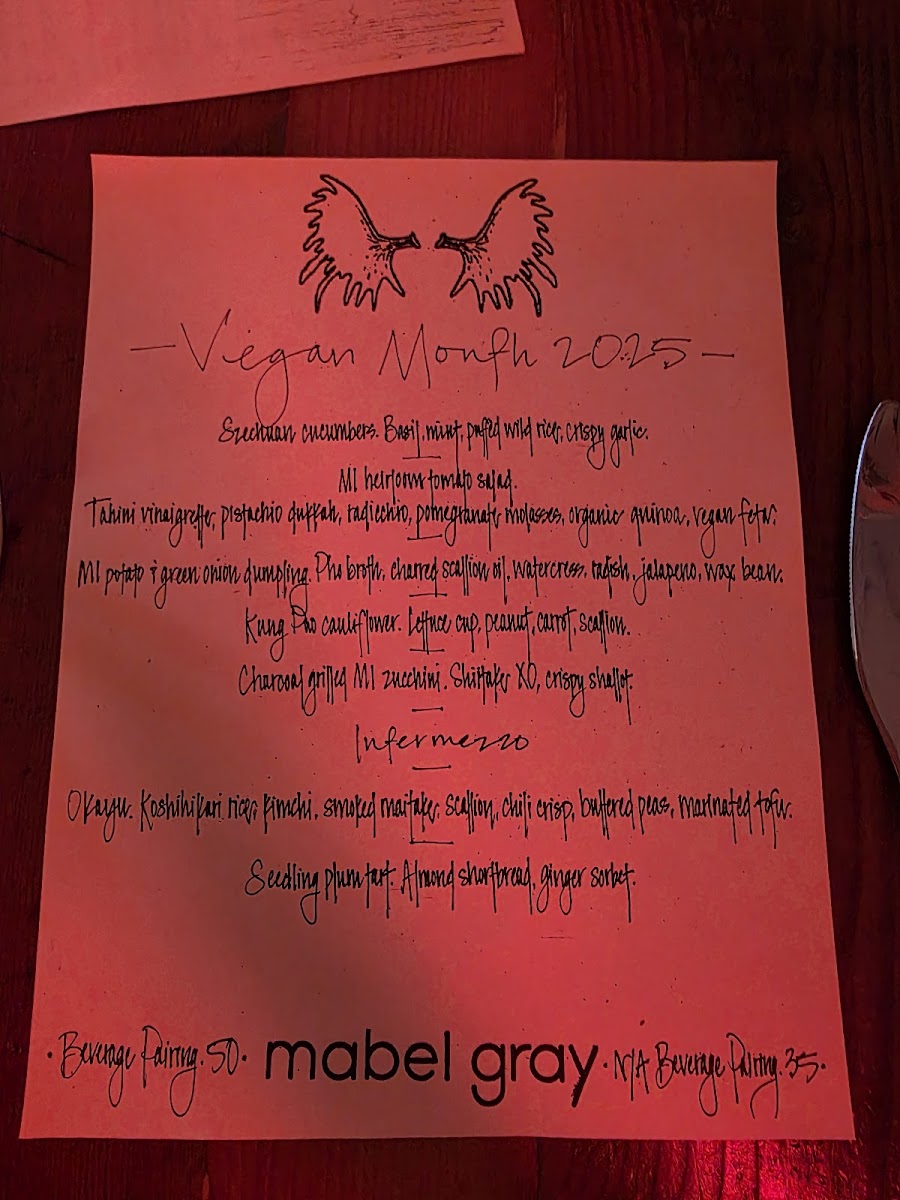 -Vegan Month 2025-
Szechuan cucumbers. Basil, mint, puffed wild rice, crispy garlic.
MI heirloom tomato salad.
Tahini vinaigrette, pistachio dukkah, radicchio, pomegranate molasses, organic quinoa, vegan feta.
MI potato & green onion dumpling. Pho broth, charred scallion oil, watercress, radish, jalapeno, wax bean.
Kung Pao cauliflower. Lettuce cup, peanut, carrot, scallion.
Charcoal grilled MI zucchini. Shiitake XO, crispy shallot.
Intermezzo
Okayu. Koshihikari rice, kimchi, smoked maitake, scallion, chili crisp, buttered peas, marinated tofu.
Seedling plum tart. Almond shortbread, ginger sorbet.
· Beverage Pairing. 50 · mabel gray · N/A Beverage Pairing. 35 ·